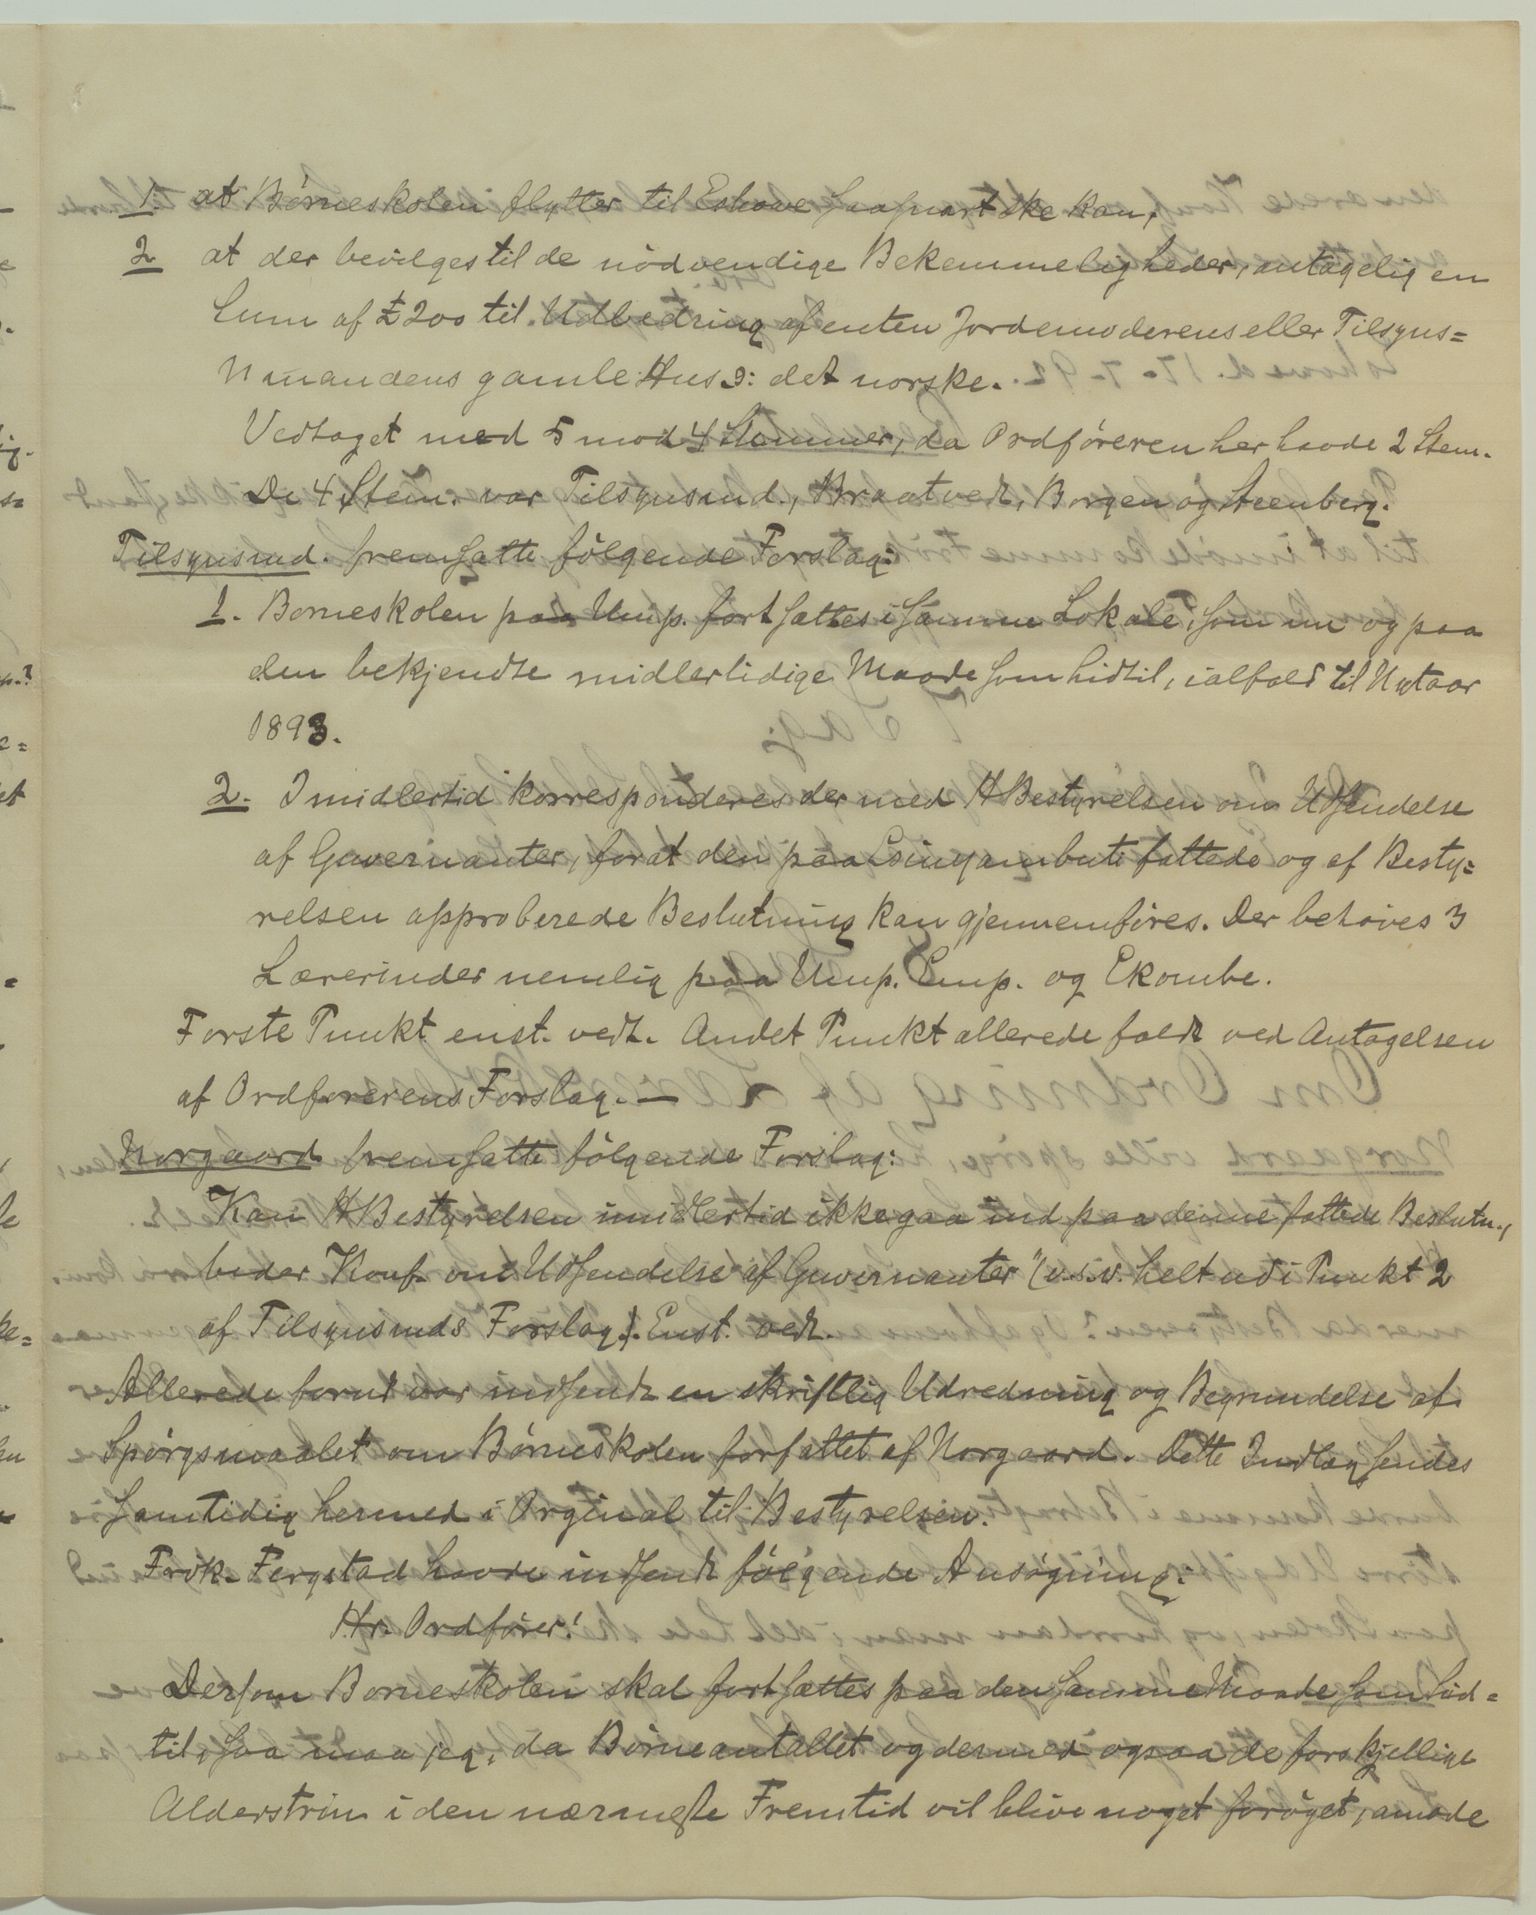 1. at Børneskolen flytter til Eshowe saasnart ske kan,
2 at der bevilges til de nödvendige Bekemmeligheder, antagelig en
Sum af £200 til Udbedring af enten Jordemoderens eller Tilsyns=
mandens gamle Hus ɔ: det norske.
Vedtaget med 5 mod 4 Stemmer, da Ordføreren her havde 2 Stem.
De 4 Stem. var Tilsynsmd., Braatvedt, Borgen og Steenberg.
Tilsynsmd. fremsatte følgende Forslag:
1. Børneskolen paa Ump. fortsættes i samme Lokale, som nu og paa
den bekjendte midlertidige Maade som hidtil, ialfald til Nytaar
1893.
2. Imidlertid korresponderes der med HBestyrelsen om Udsendelse
af Guvernanter, forat den paa Esinyambuti fattede og af Besty=
relsen approberede Beslutning kan gjennemføres. Der behøves 3
Lærerinder nemlig paa Ump. Emp. og Ekombe.
Første Punkt enst. vedt. Andet Punkt allerede faldt ved Antagelsen
af Ordførerens Forslag. —
Norgaard fremsatte følgende Forslag:
Kan HBestyrelsen imidlertid ikke gaa ind paa denne fattede Beslutn.,
beder Konf. om Udsendelse af Guvernanter "(o.s.v. helt ud i Punkt 2
af Tilsynsmds Forslag). Enst. vedt.
Allerede forud var indsendt en skriftlig Udredning og Begrundelse af
Spørgsmaalet om Børneskolen forfattet af Norgaard. Dette Indlæg sendes
samtidig hermed i Orginal til Bestyrelsen.
Frøk. Fergstad havde indsendt følgende Ansøgning:
Hr. Ordfører!
Dersom Børneskolen skal fortsættes paa den samme Maade som hid=
til, saa maa jeg, da Børneantallet og dermed ogsaa de forskjellige
Alderstrin i den nærmeste Fremtid vil blive noget forøget, anmode